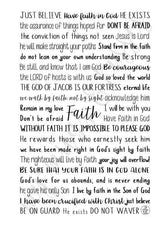 JUST BELIEVE Have faith in God HE EXISTS
the assurance of things hoped for DON'T BE AFRAID
the conviction of things not seen Jesus is Lord
he will make straight your paths Stand firm in the faith
do not lean on your own understanding Be strong
Be still, and know that I am God Be courageous
the LORD of hosts is with us God so loved the world
THE GOD OF JACOB IS OUR FORTRESS eternal life
we walk by faith not by sight acknowledge him
Remain in my love Faith I will be with you
Don't be afraid Have Faith in God
WITHOUT FAITH IT IS IMPOSSIBLE TO PLEASE GOD
He rewards those who earnestly seek him
we have been made right in God's sight by faith
The righteous will live by Faith your joy will overflow
BE SURE THAT YOUR FAITH IS IN GOD ALONE
God's love for us abounds, and is never ending
he gave his only Son I live by faith in the Son of God
I have been crucified with Christ just believe
BE ON GUARD He exists DO NOT WAVER